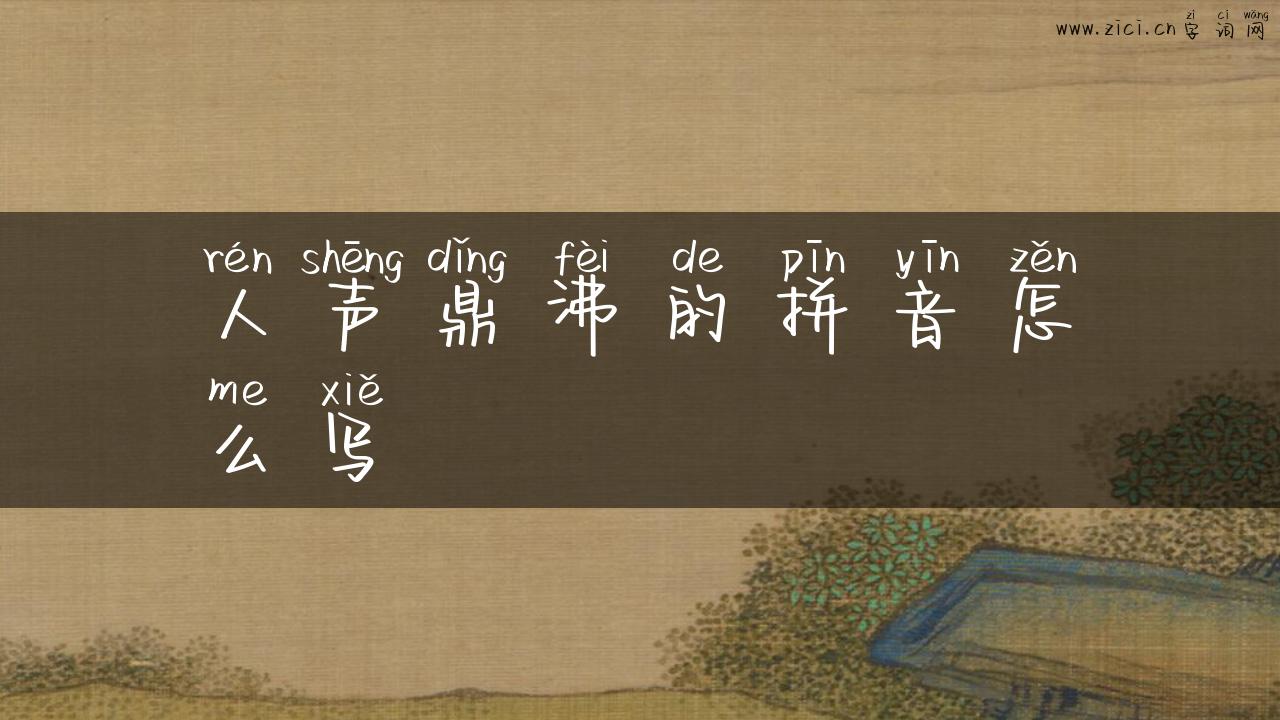 zì cí wǎng
www.zici.cn 字词网
rén shēng dǐng fèi de pīn yīn zěn
人声鼎沸的拼音怎
me xiě
么写